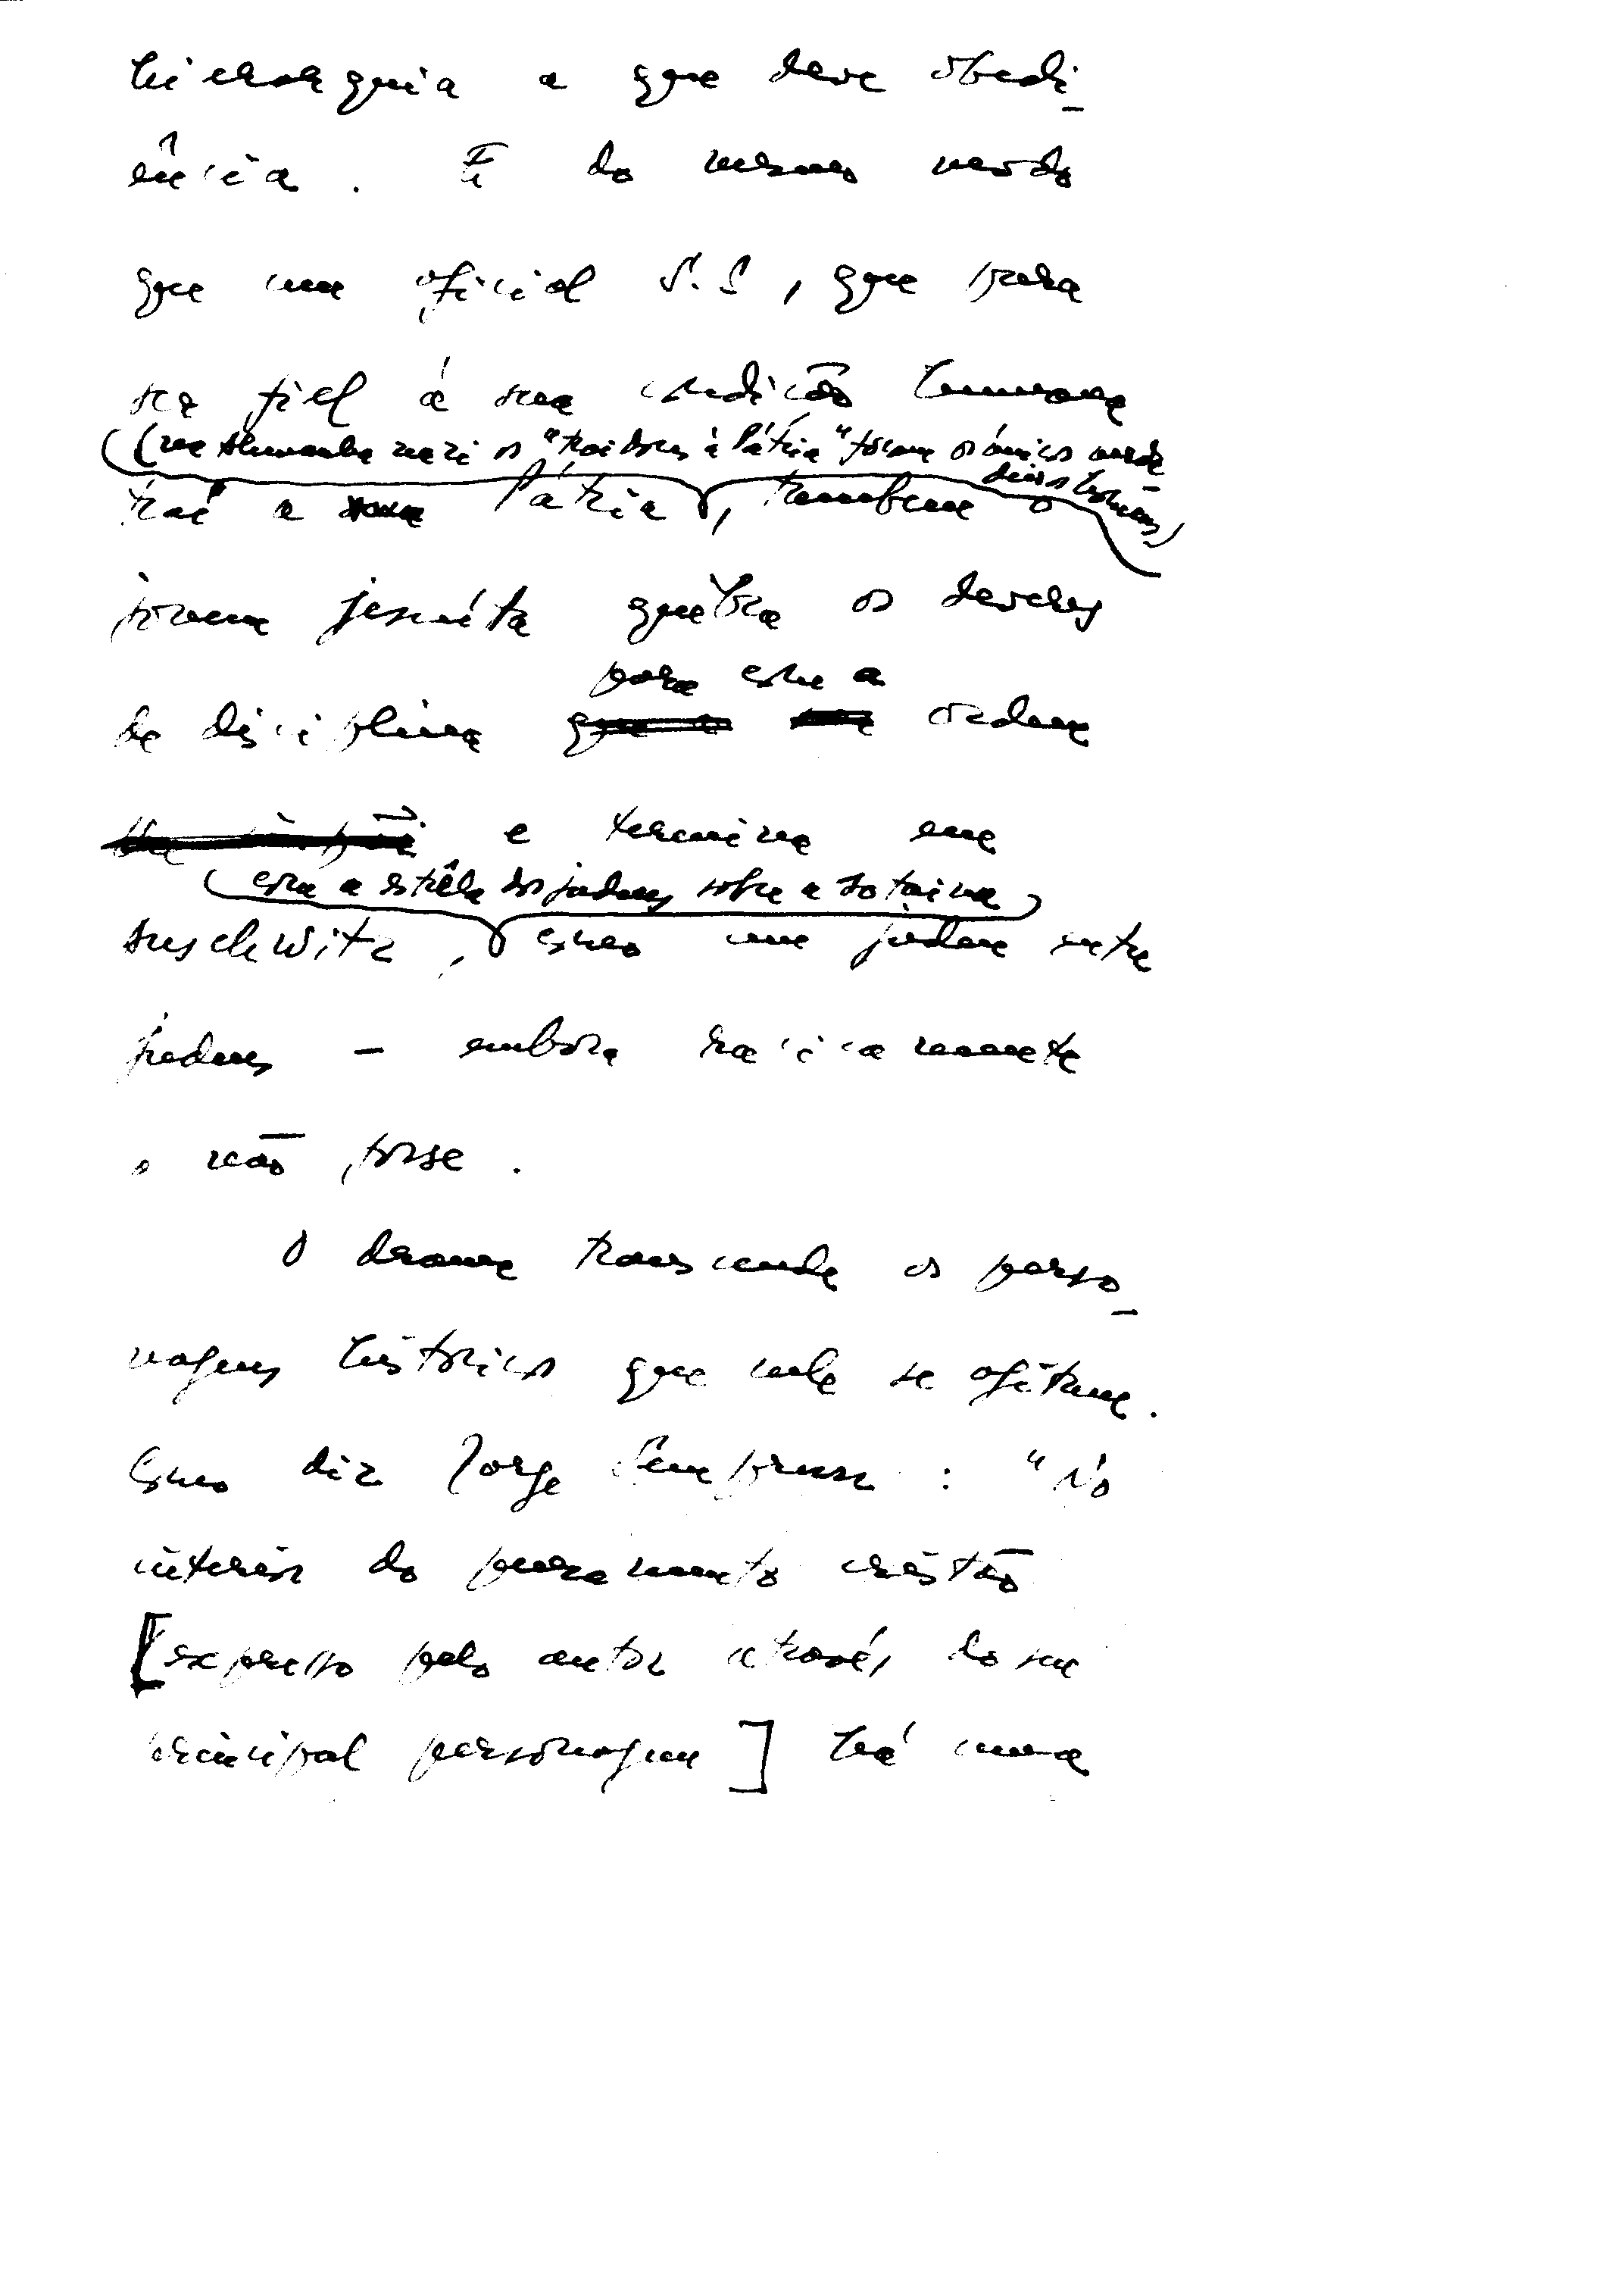 hierarquia a que deve obedi-
ência. E do mesmo modo
que um oficial S.S, que para
ser fiel á sua condição humana
(na Alemanha nazi os "traidores à Pátria" foram os únicos verda-
deiros heróis)
trai a sua Pátria, tambem o
jovem jesuíta quebra os deveres
para com a
de disciplina que a sua ordem
lhe impõe e termina em
com a estrêla dos judeus sobre a sotaina
Auschwitz, como um judeu entre
judeus – embora racicamente
o não fosse.
O drama transcende os perso-
nagens históricos que nele se agitam.
Como diz Jorge Semprun : "No
interior do pensamento cristão
[expresso pelo autor através do seu
principal personagem] há uma